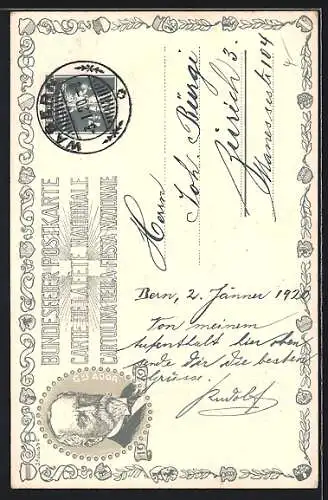 WABERN
BUNDESFEIER-POSTKARTE
CARTE DE LA FÊTE NATIONALE
CARTOLINA DELLA FESTA NAZIONALE
Gve ADOR
Herrn
Joh. Bürgi
Zürich 3.
Manessestr. 104
Bern, 2. Jänner 1920
Von meinem
Aufenthalt hier oben
sende Dir die besten
Grüsse.
Rudolf